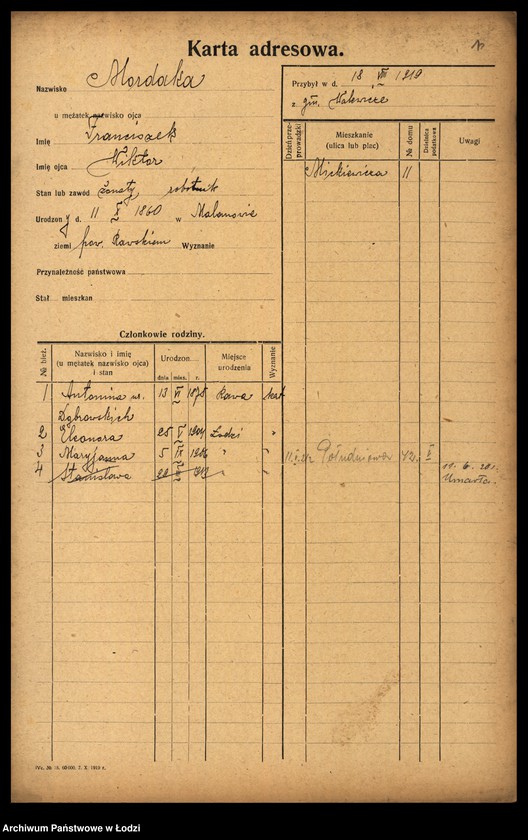 Karta adresowa.
Nazwisko Mordaka
u mężatek nazwisko ojca
Imię Franciszek
Imię ojca Wiktor
Stan lub zawód żonaty robotnik
Urodzony d. 11 X 1860 w
ziemi pow. Rawskiem Wyznanie
Przynależność państwowa
Stał. mieszkan
Przybył w d. 18 VIII 1919
z gm.
Dzień przeprowadzki
Mieszkanie
(ulica lub plac)
№ domu
Dzielnica podatkowa
Uwagi
Mickiewicza 11
11. 6. 20 r.
Umarła.
Członkowie rodziny.
№ bież.
Nazwisko i imię
(u mężatek nazwisko ojca)
i stan
Urodzon
dnia mies. r.
Miejsce
urodzenia
Wyznanie
1 Antonina 13 VI 1878 Rawa kat
Dąbrowskich
2 Eleonora 25 V 1904 Łodzi "
3 Maryjanna 5 IX 1906 " "
4 Stanisława 22 "
Południowa 42 II
Archiwum Państwowe w Łodzi